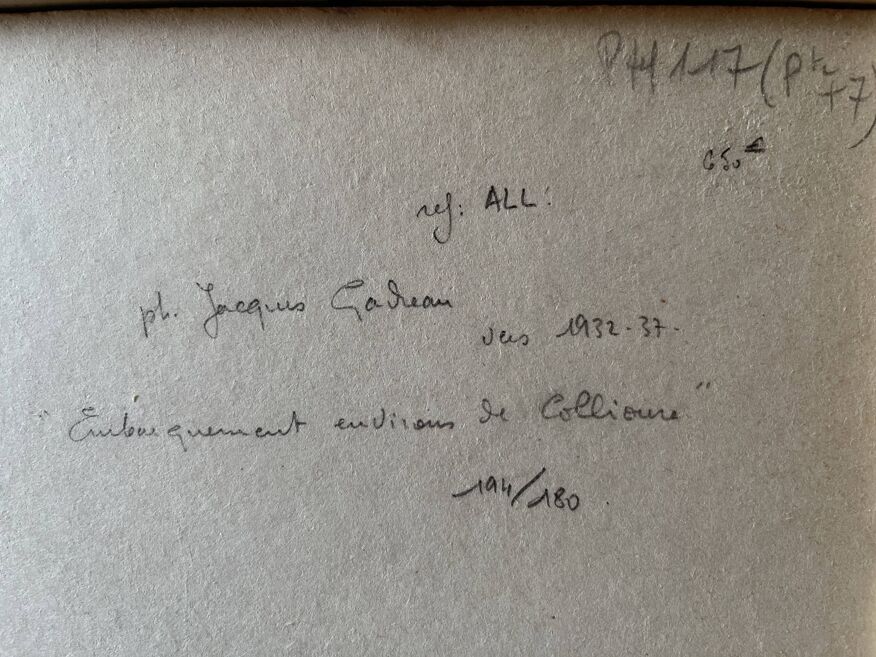 PH 117 (Ph
650 €
ref: ALL:
ph. Jacques Gadreau
vers 1932-37.
"Embarquement environs de Collioure"
194/180